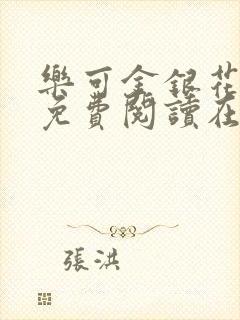 樂可金銀花
免費閱讀在
張洪